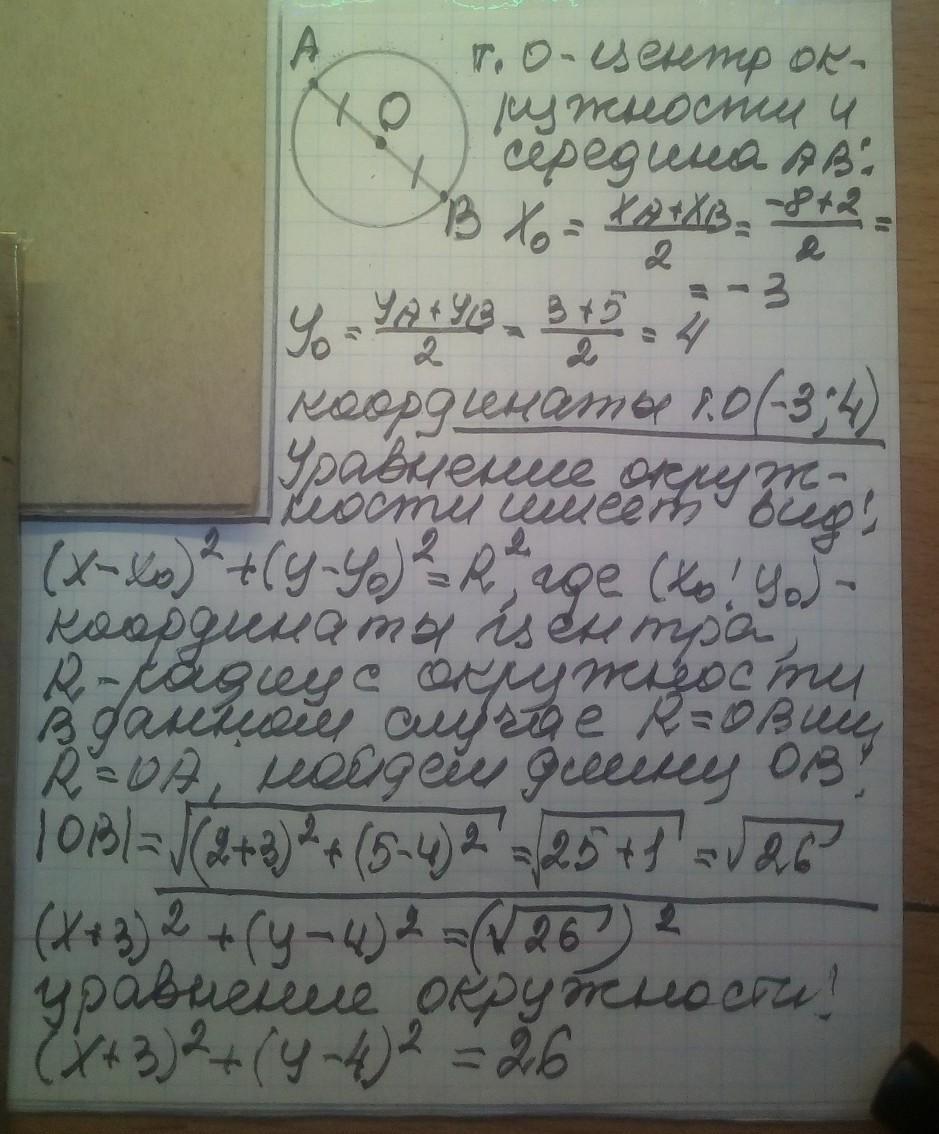 A
O
B
т. О - центр ок-
ружности и
середина АВ:
X₀ = (XA+XB)/2 = (-8+2)/2 =
= -3
y₀ = (yA+yB)/2 = (3+5)/2 = 4
координаты т.О(-3;4)
Уравнение окруж-
ности имеет вид:
(x-x₀)²+(y-y₀)²=R², где (x₀; y₀) -
координаты центра,
R-радиус окружности
В данном случае R=OB или
R=OA, найдем длину OB:
|OB|=√((2+3)²+(5-4)²) =√(25+1) =√26
(x+3)² +(y-4)² =(√26)²
уравнение окружности:
(x+3)²+(y-4)² =26